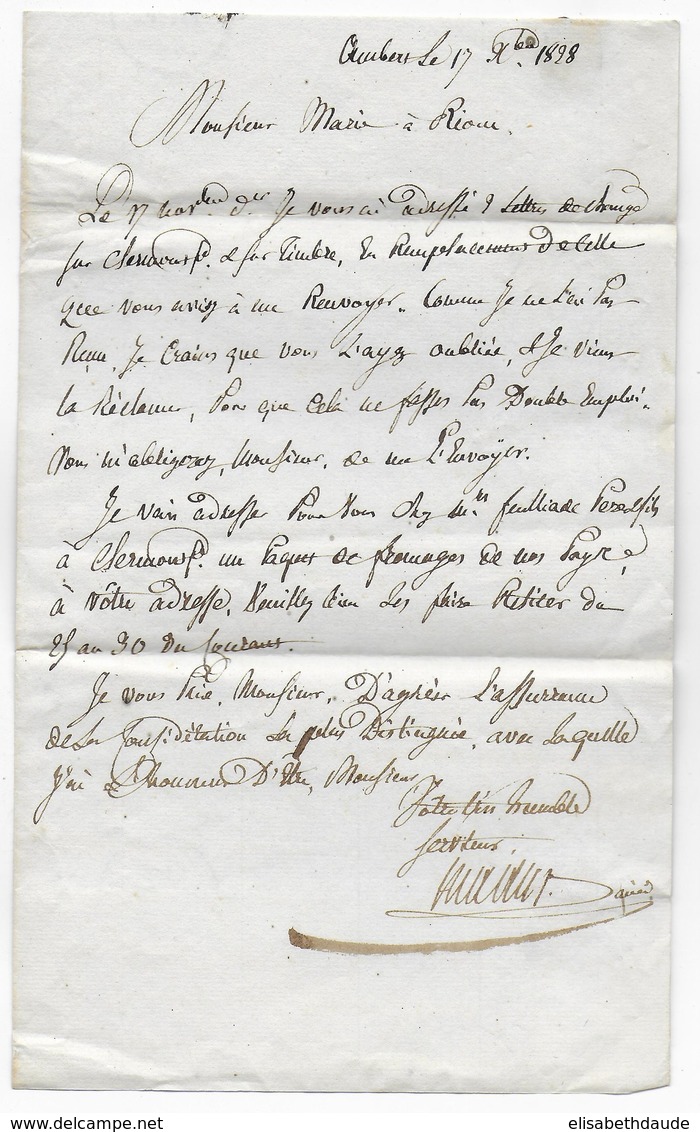 Ambert Le 17 Xbre 1828
Monsieur Marie à Riom.
Le 17 novbre dr Je vous ai adressé 2 Lettres de change
sur Clermont fd. & sur Timbre, En Remplacement de Celle
que vous aviez à me Renvoyer. Comme Je ne L'ai Pas
Reçu, Je Crains que vous L'ayez oubliée, & Je viens
La Réclamer, Pour que Cela ne fasse Pas Double Emploi.
Vous m'obligerez, Monsieur, de me L'Envoyer.
Je vais adresser Pour Vous Chez Mrs feuilliade Pere & fils
à Clermont fd. un Paquet de fromages de nos Pays,
à Votre adresse, Veuillez bien Les faire Retirer du
25 au 30 Du Courant.
Je vous Prie, Monsieur, D'agréer L'assurance
de La Considération La plus Distinguée, avec Laquelle
J'ai L'honneur D'Etre, Monsieur
Votre très humble
Serviteur.
elisabethdaude
© delcampe.net